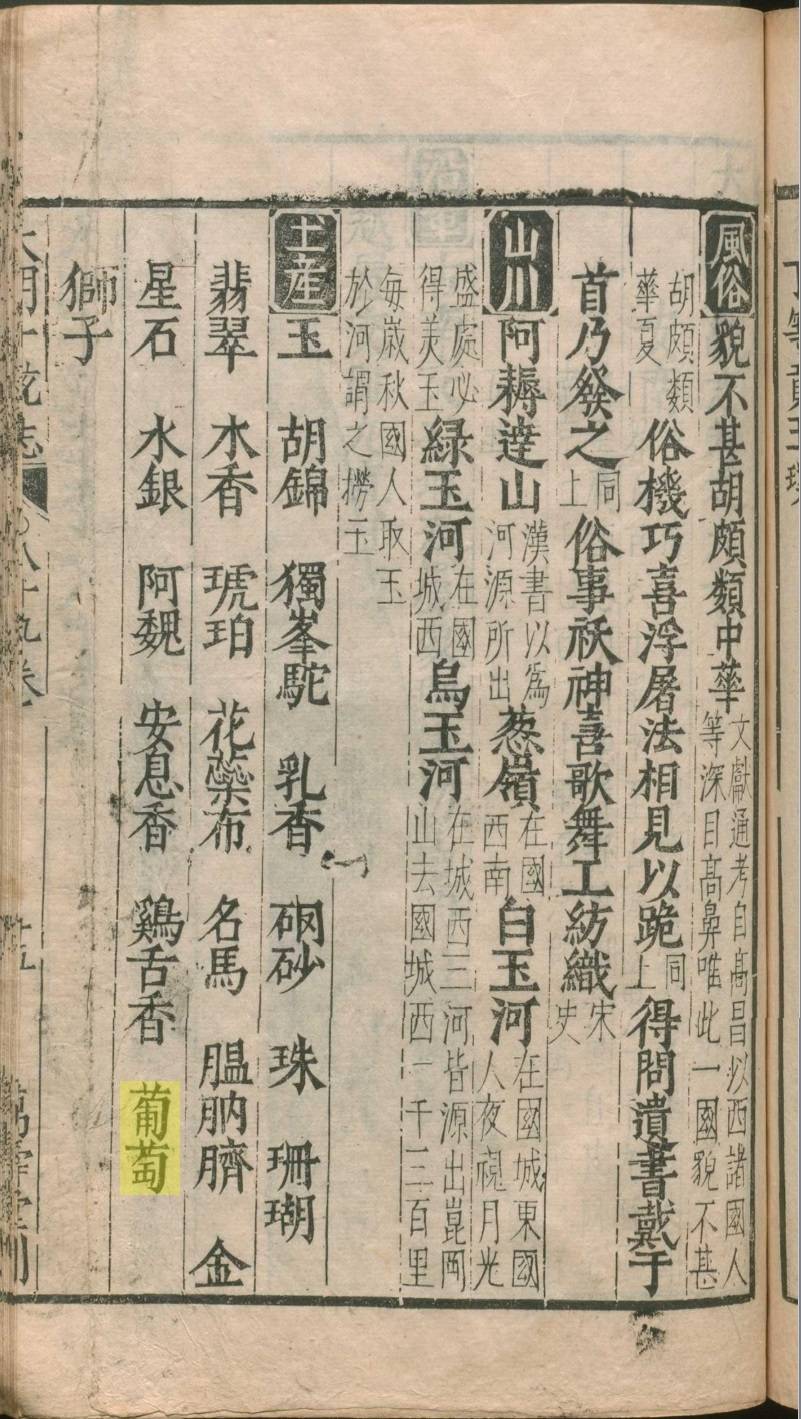 風俗貌不甚胡頗類中華文獻通考自髙昌以西諸國人等深目髙鼻唯此一國貌不甚
胡頗類華夏俗機巧喜浮屠法相見以跪同上得問遺書戴于
首乃發之同上俗事祅神喜歌舞工紡織宋史
山川阿耨達山漢書以為河源所出葱嶺在國西南白玉河在國城東國人夜視月光
盛處必得美玉綠玉河在國城西烏玉河在城西三河皆源出崑岡山去國城西一千三百里
每歲秋國人取玉於河謂之撈玉
土產玉 胡錦 獨峯駝 乳香 硇砂 珠 珊瑚
翡翠 木香 琥珀 花蘂布 名馬 膃肭臍 金
星石 水銀 阿魏 安息香 鷄舌香 葡萄
獅子
大明一統志 八十九卷 萬壽堂刊